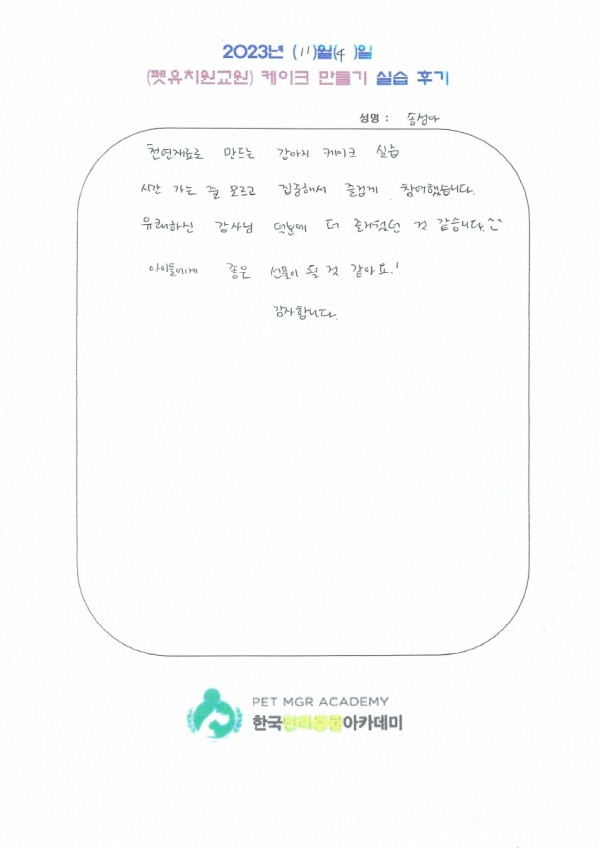 2023년 (11)월(4 )일
(펫유치원교원) 케이크 만들기 실습 후기
성명 : 송성아
천연재료로 만드는 강아지 케이크 실습
시간 가는 줄 모르고 집중해서 즐겁게 참여했습니다.
유쾌하신 강사님 덕분에 더 즐거웠던 것 같습니다.^^
아이들에게 좋은 선물이 될 것 같아요!
감사합니다.
PET MGR ACADEMY
한국반려동물아카데미